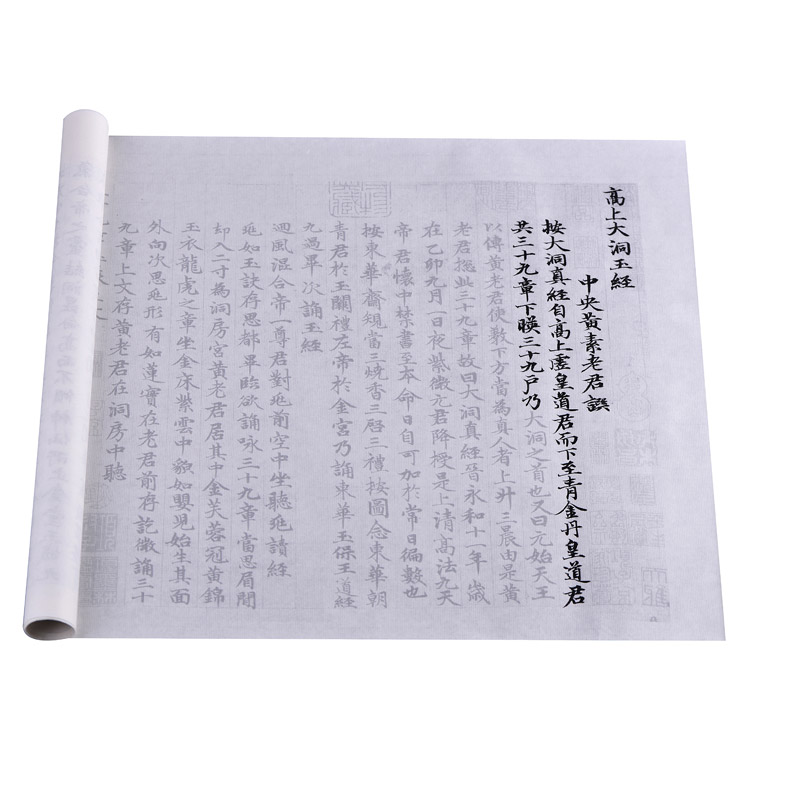 高上大洞玉経
中央黄素老君譔
按大洞真経自高上虚皇道君而下至青金丹皇道君
共三十九章下暎三十九戸乃大洞之首也又曰元始天王
以傳黄老君使教下方當為真人者上升三晨由是黄
老君揔此三十九章故曰大洞真経晉永和十一年歲
在乙卯九月一日夜紫微元君降授是上清高法九天
帝君懷中禁書至本命日自可加於常日徧數也
按東華齋䂓當三燒香三啓三禮按圖念東華朝
青君於玉闕禮左帝於金宮乃誦東華玉保王道経
九過畢次誦玉経
迴風混合帝一尊君對𠃔前空中坐聽𠃔讀経
𠃔如玉訣存思都畢臨欲誦詠三十九章當思眉間
却入二寸為洞房宮黄老君居其中金芙蓉冠黄錦
玉衣龍虎之章坐金床紫雲中貌如嬰児始生其面
外向次思𠃔形有如蓮寶在老君前存訖微誦三十
九章上文存黄老君在洞房中聽